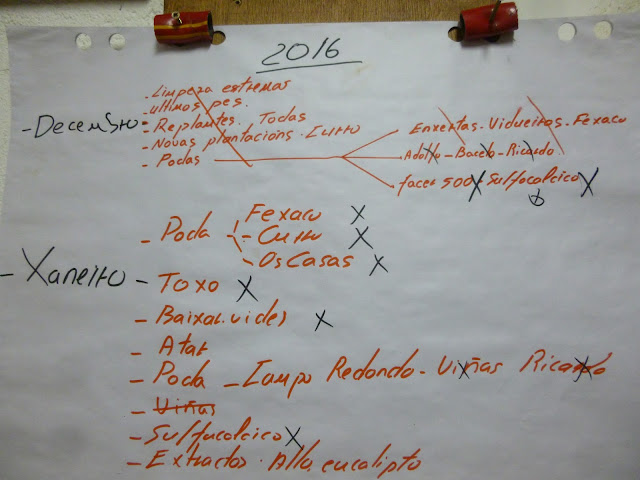 2016
- Decembro
. Limpeza estremas
. ultimos pes.
- Replantes. Todas
- Novas plantacions. Curro
- Podas
Enxertas - Vidueiros - Fexacu
Adolfo - Bacelo - Ricardo
facer 500 X Sulfocalcico X
- Xaneiro
- Poda
Fexacu X
- Curro X
- Os Casas X
- Toxo X
- Baixar vides X
- Atar
- Poda - Campo Redondo - Viñas Ricardo
- Viñas
- Sulfocalcico X
- Extractos. Allo, eucalipto